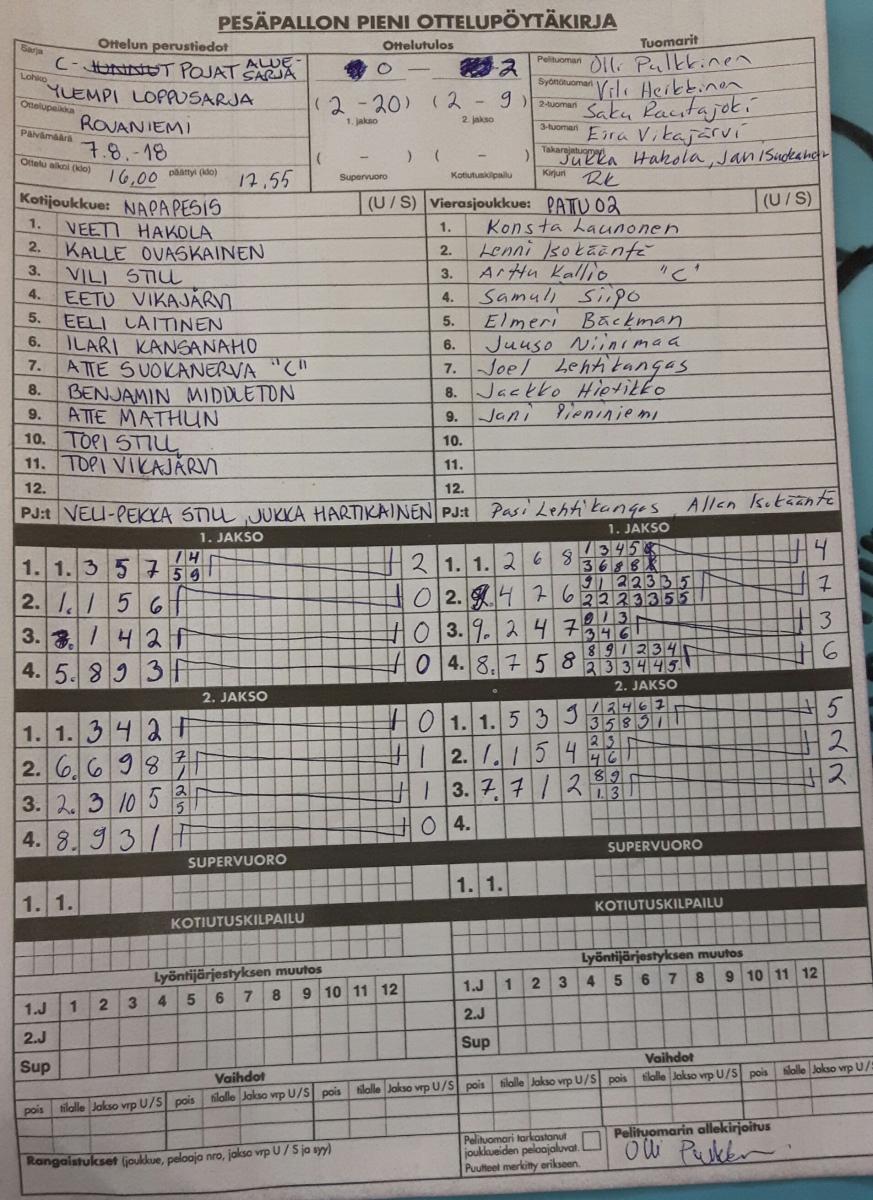 PESÄPALLON PIENI OTTELUPÖYTÄKIRJA
Ottelun perustiedot
Ottelutulos
Tuomarit
Sarja C-JUNNUT POJAT ALUE-SARJA
Lohko YLEMPI LOPPUSARJA
Ottelupaikka ROVANIEMI
Päivämäärä 7.8.-18
Ottelu alkoi (klo) 16,00 päättyi (klo) 17.55
0 — 2
(2 - 20) (2 - 9)
1. jakso 2. jakso
( - ) ( - )
Supervuoro Kotiutuskilpailu
Pelituomari Olli Pulkkinen
Syöttötuomari Vili Heikkinen
2-tuomari Saku Rautajoki
3-tuomari Eira Vikajärvi
Takarajatuomari Jukka Hakola, Jani Suokanerva
Kirjuri RK
Kotijoukkue: NAPAPESIS (U / S)
1. VEETI HAKOLA
2. KALLE OVASKAINEN
3. VILI STILL
4. EETU VIKAJÄRVI
5. EELI LAITINEN
6. ILARI KANSANAHO
7. ATTE SUOKANERVA "C"
8. BENJAMIN MIDDLETON
9. ATTE MATHLIN
10. TOPI STILL
11. TOPI VIKAJÄRVI
12.
PJ:t VELI-PEKKA STILL, JUKKA HARTIKAINEN
Vierasjoukkue: PATTU 02 (U / S)
1. Konsta Launonen
2. Lenni Isokääntä
3. Arttu Kallio "C"
4. Samuli Siipo
5. Elmeri Bäckman
6. Juuso Niinimaa
7. Joel Lehtikangas
8. Jaakko Hietikko
9. Jani Pieniniemi
10.
11.
12.
PJ:t Pasi Lehtikangas, Allan Isokääntä
1. JAKSO
1. 1. 3 5 7 1 4 2
5 9
2. 1. 1 5 6 0
3. 1 4 2 0
4. 5. 8 9 3 0
2. JAKSO
1. 1. 3 4 2 0
2. 6. 6 9 8 7 1
1
3. 2. 3 10 5 2 1
5
4. 8. 9 3 1 0
SUPERVUORO
1. 1.
KOTIUTUSKILPAILU
1. JAKSO
1. 1. 2 6 8 1 3 4 5 4
3 6 8 8
2. 4 7 6 9 1 2 2 3 3 5 7
2 2 2 3 3 5 5
3. 9. 2 4 7 1 3 3
3 4 6
4. 8. 7 5 8 8 9 1 2 3 4 6
2 3 3 4 4 5
2. JAKSO
1. 1. 5 3 9 1 2 4 6 7 5
3 5 8 9 1
2. 1. 1 5 4 2 3 2
4 6
3. 7. 7 1 2 8 9 2
1. 3
4.
SUPERVUORO
1. 1.
KOTIUTUSKILPAILU
Lyöntijärjestyksen muutos
1.J 1 2 3 4 5 6 7 8 9 10 11 12
2.J
Sup
Lyöntijärjestyksen muutos
1.J 1 2 3 4 5 6 7 8 9 10 11 12
2.J
Sup
Vaihdot
pois tilalle Jakso vrp U / S pois tilalle Jakso vrp U / S pois tilalle Jakso vrp U / S
Vaihdot
pois tilalle Jakso vrp U / S pois tilalle Jakso vrp U / S pois tilalle Jakso vrp U/S
Rangaistukset (joukkue, pelaaja nro, jakso vrp U / S ja syy)
Pelituomari tarkastanut
joukkueiden pelaajaluvat.
Puutteet merkitty erikseen.
Pelituomarin allekirjoitus
Olli